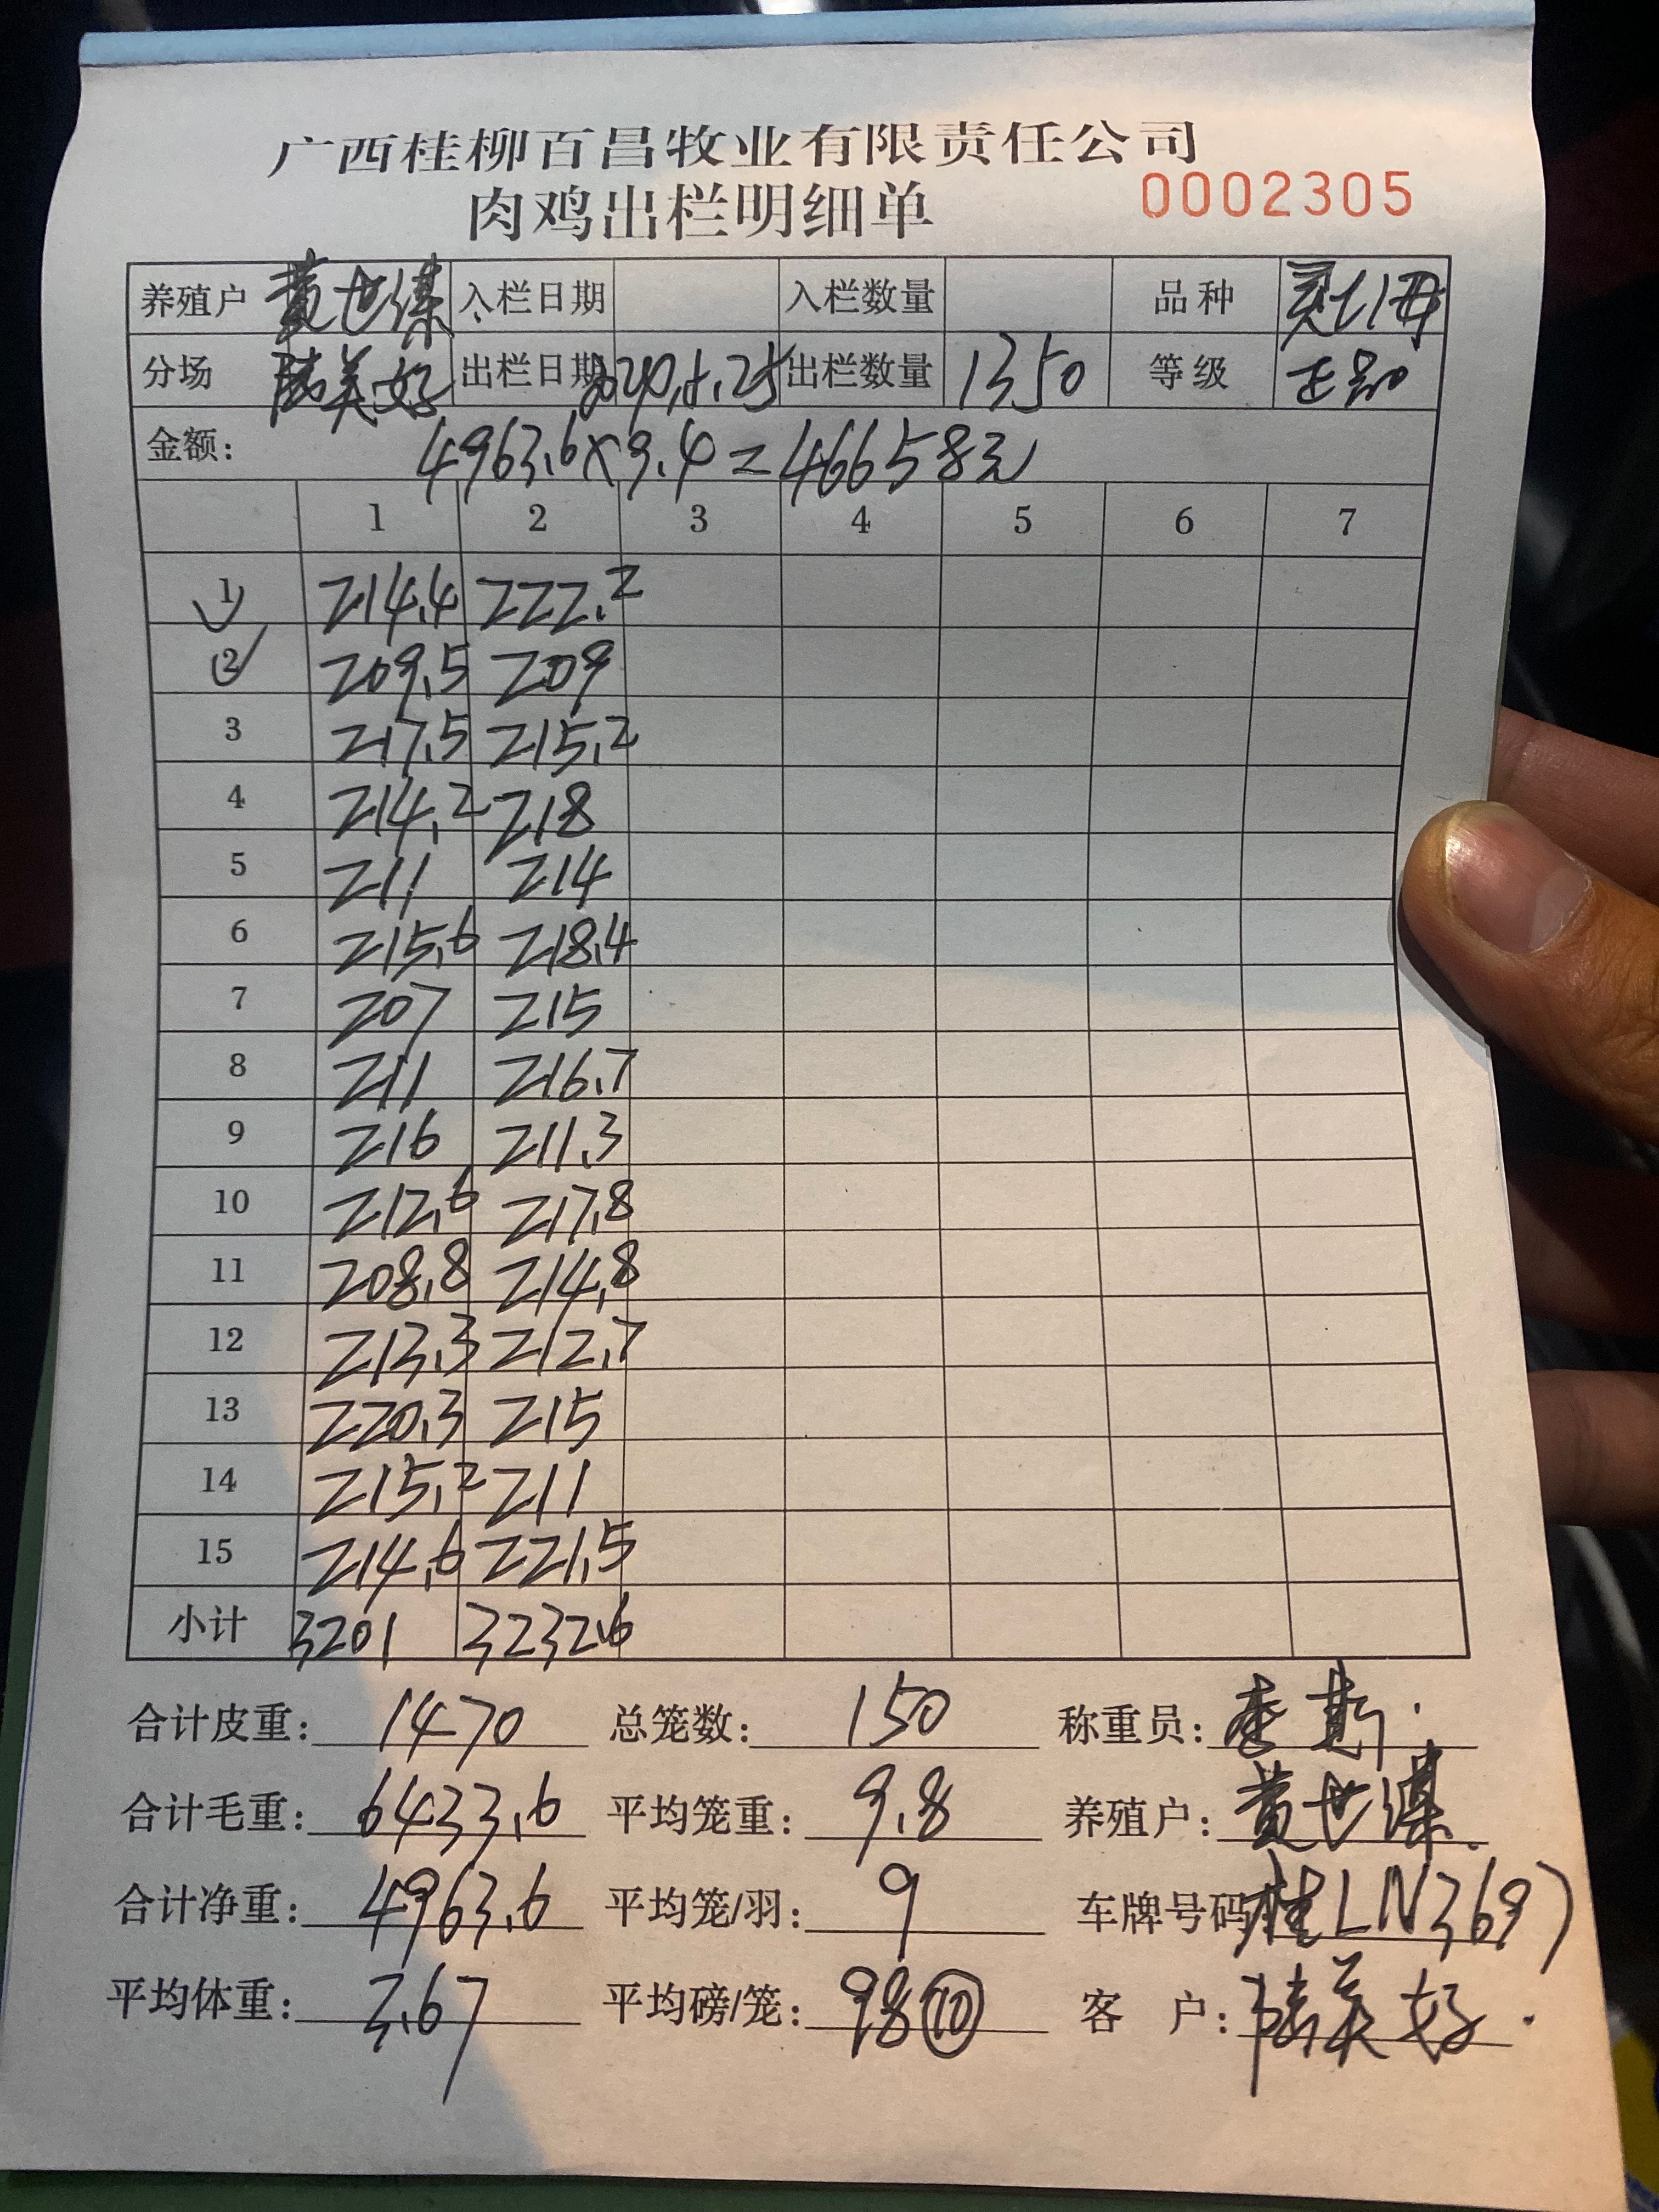 广西桂柳百昌牧业有限责任公司
肉鸡出栏明细单 0002305
养殖户 黄世谋 入栏日期 入栏数量 品种 灵山母
分场 陆美好 出栏日期 出栏数量 1350 等级 正品
金额: 4963.6×9.4=46658元
1 2 3 4 5 6 7
1 214.4 222.2
2 209.5 209
3 217.5 215.2
4 214.2 218
5 211 214
6 215.6 218.4
7 207 215
8 211 216.7
9 216 211.3
10 212.6 217.8
11 208.8 214.8
12 213.3 212.7
13 220.3 215
14 215.2 211
15 214.6 221.5
小计 3201 3232.6
合计皮重: 1470 总笼数: 150 称重员: 李
合计毛重: 6433.6 平均笼重: 9.8 养殖户: 黄世谋
合计净重: 4963.6 平均笼/羽: 9 车牌号码 桂LN3697
平均体重: 3.67 平均磅/笼: 98 ⑩ 客 户: 陆美好